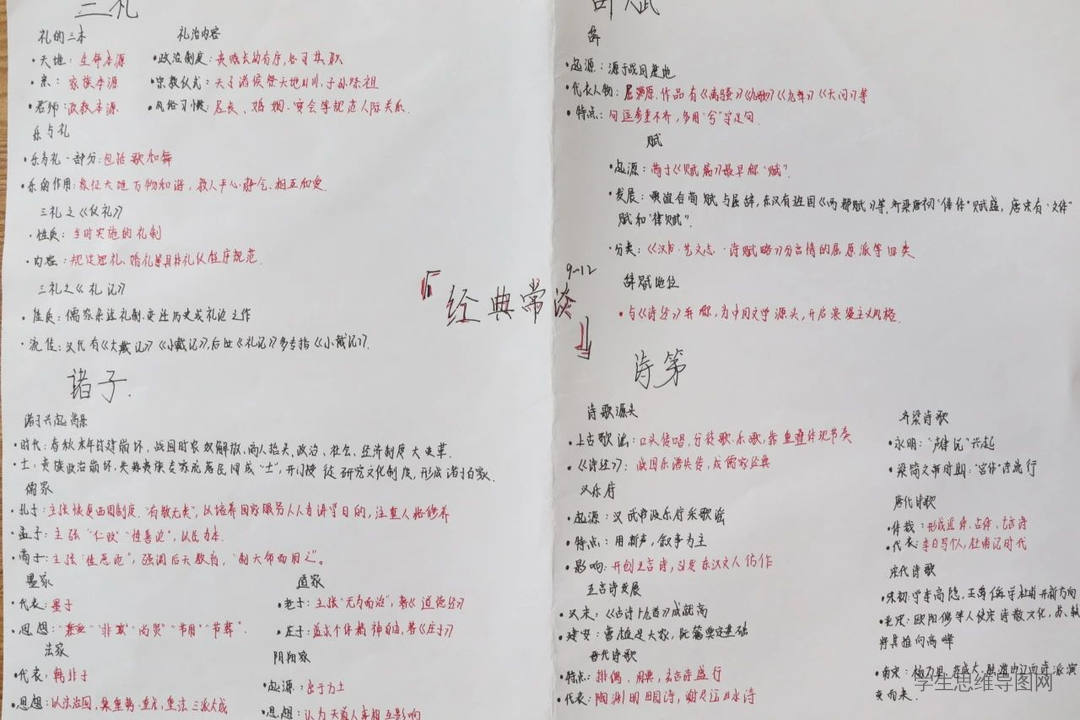 三礼
礼的三本
礼治内容
·天地：生命本源
·政治制度：
·亲：家族本源
·宗教仪式：天子诸侯祭天地日川，子孙祭祖
·君师：政教本源
·风俗习惯：居丧、婚姻、宴会等规范人际关系.
乐与礼
·乐与礼一部分：包括歌和舞
·乐的作用：象征天地万物和谐，教人平心静气、相互和爱.
三礼之《仪礼》
·性质：当时实施的礼制
·内容：规定丧礼、婚礼等具体礼仪程序规范.
三礼之《礼记》
·性质：儒家杂述礼制、变迁历史或礼论之作
·流传：汉代有《大戴记》《小戴记》，后世《礼记》多专指《小戴记》.
『经典常谈』
9-12
诸子.
诸子兴起背景
·时代：春秋末年封建崩坏，战国时家奴解放，商人抬头，政治、社会、经济制度大变革.
·士：贵族政治崩坏，失势贵族专家流落民间成“士”，开门授徒研究文化制度，形成诸子百家.
儒家
·孔子：主张恢复西周制度、“有教无类”，以培养国家服务人人、讲学目的，注重人格修养
·孟子：主张“仁政”“性善论”，以民为本.
·荀子：主张“性恶论”，强调后天教育，“制天命而用之”.
墨家
·代表：墨子
·思想：“兼爱”“非攻”“尚贤”“节用”“节葬”.
道家
·老子：主张“无为而治”，著《道德经》
·庄子：追求个体精神自由，著《庄子》
法家
·代表：韩非子
·思想：以法治国，集重势、重术、重法三派大成
阴阳家
·起源：出于方士
·思想：认为天道人事相互影响
辞赋
辞
·起源：源于战国楚地
·代表人物：屈原，作品有《离骚》《九歌》《九章》《天问》等
·特点：句逗参差不齐，多用“兮”字足句.
赋
·起源：荀子《赋篇》最早称“赋”.
·发展：汉有班固《两都赋》等，齐梁唐初“俳体”赋盛，唐末有“文体”
赋和“律赋”.
·分类：《汉书·艺文志·诗赋略》分言情的屈原派等四类
辞赋地位
·与《诗经》并称，为中国文学源头，开启浪漫主义风格.
诗第
诗歌源头
·上古歌谣：口头传唱，分徒歌、乐歌，靠重叠体现节奏
·《诗经》：战国乐谱失传，成儒家经典
汉乐府
·起源：汉武帝设乐府采歌谣
·特点：用新声，叙事为主
·影响：开创五言诗，引发东汉文人仿作
五言诗发展
·汉末：《古诗十九首》成就高
·建安：曹植是大家，阮籍奠定基础
晋代诗歌
·特点：排偶、用典，玄言诗盛行
·代表：陶渊明田园诗，谢灵运山水诗
齐梁诗歌
·永明：“声律说”兴起
·梁简文帝时期：“宫体”诗流行
唐代诗歌
·体裁：形成近体、古体、七言诗
·代表：李白写个人，杜甫记时代
宋代诗歌
·宋初：学李商隐，王
·北宋：欧阳修等人使定诗散文化，苏、
将其推向高峰
·南宋：杨万里、
更向来.
学生思维导图网